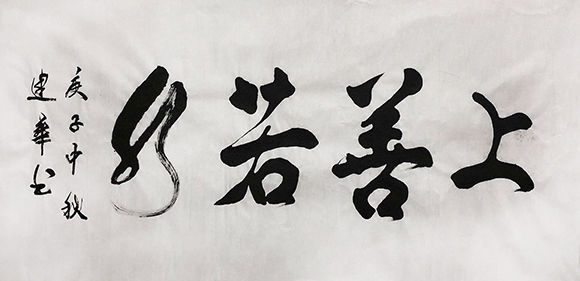 上善若水
庚子中秋
建華书